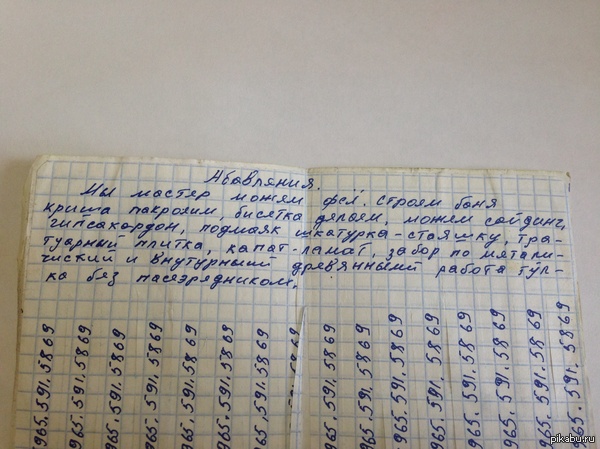 Абавления.
Мы мастер можем фсё. строем баня
криша пакроям, бисетка делаем, можем сайдинг,
гипсакордон, подмаяк шкатурка-стаяшку, тра-
туарный плитка, капат-ламат, забор по метали-
чиский и внутурный древянными работа тул-
ка без пасезрядником.
965.591.5869
965.591.5869
965.591.5869
965.591.5869
965.591.5869
965.591.5869
965.591.5869
965.591.5869
965.591.5869
965.591.5869
965.591.5869
965.591.5869
pikabu.ru